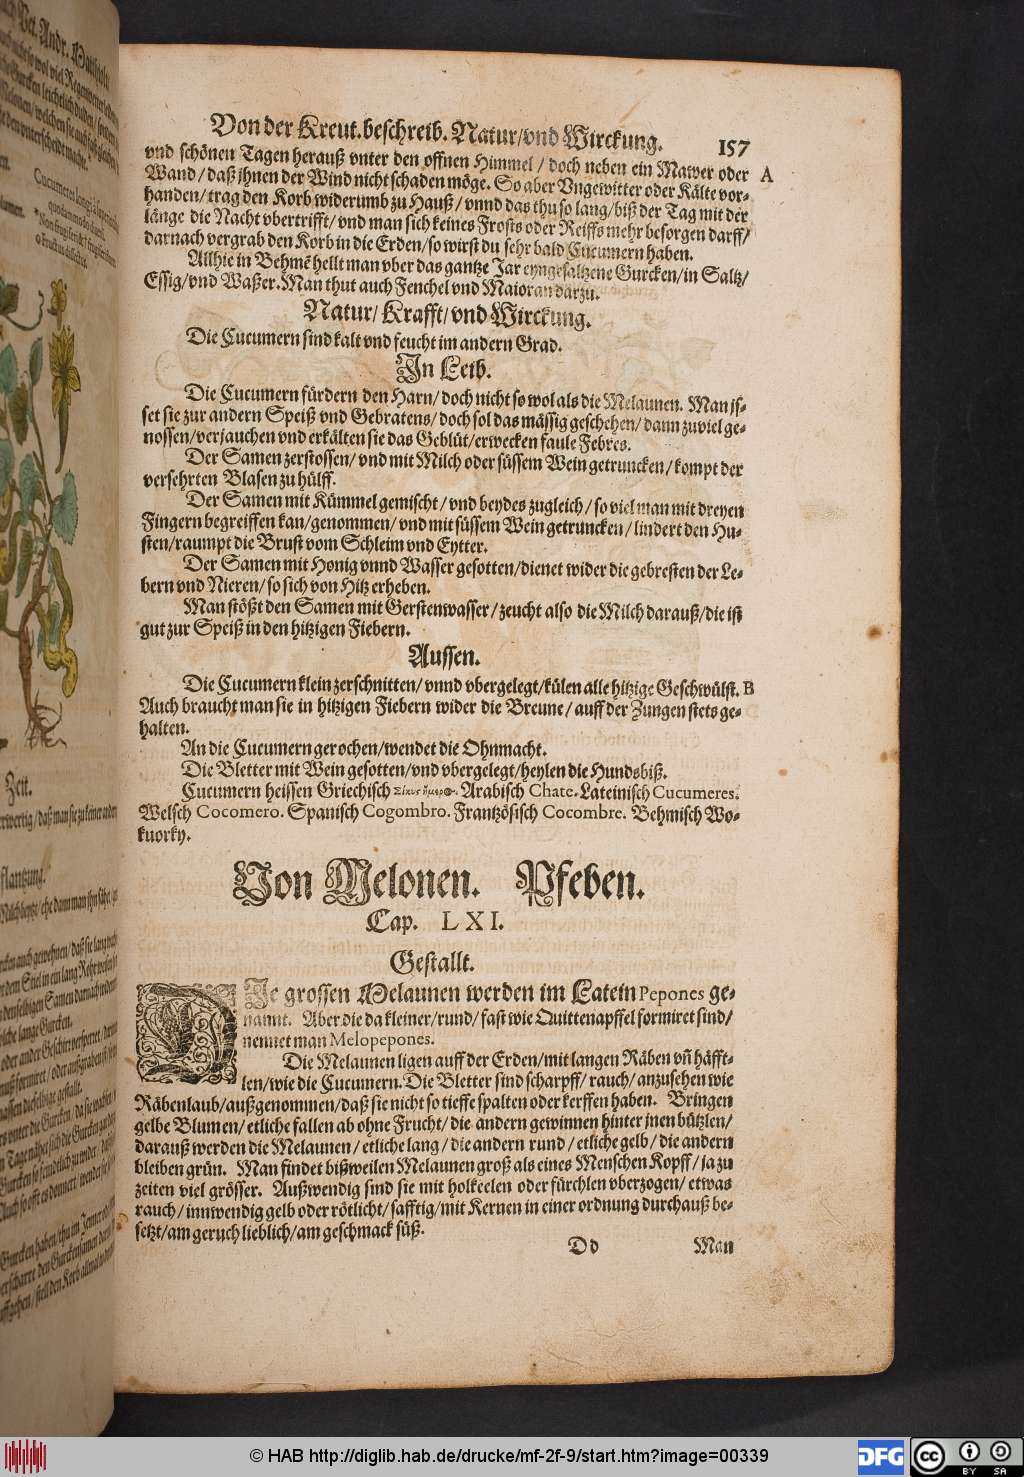 Von der Kreut. beschreib. Natur/ vnd Wirckung. 157
vnd schönen Tagen herauß vnter den offnen Himmel / doch neben ein Mawer oder A
Wand / daß ihnen der Wind nicht schaden möge. So aber Vngewitter oder Kälte vor-
handen / trag den Korb widerumb zu Hauß / vnnd das thu so lang / biß der Tag mit der
länge die Nacht vbertrifft / vnd man sich keines Frosts oder Reiffs mehr besorgen darff/
darnach vergrab den Korb in die Erden / so wirst du sehr bald Cucumern haben.
Allhie in Behmē hellt man vber das gantze Jar eyngesaltzene Gurcken / in Saltz/
Essig / vnd Waßer. Man thut auch Fenchel vnd Maioran darzu.
Natur / Krafft / vnd Wirckung.
Die Cucumern sind kalt vnd feucht im andern Grad.
In Leib.
Die Cucumern fürdern den Harn / doch nicht so wol als die Melaunen. Man is-
set sie zur andern Speiß vnd Gebratens / doch sol das mässig geschehen / dann zuviel ge-
nossen / verjauchen vnd erkälten sie das Geblüt / erwecken faule Febres.
Der Samen zerstossen / vnd mit Milch oder süssem Wein getruncken / kompt der
versehrten Blasen zu hülff.
Der Samen mit Kümmel gemischt / vnd beydes zugleich / so viel man mit dreyen
Fingern begreiffen kan / genommen / vnd mit süssem Wein getruncken / lindert den Hu-
sten / raumpt die Brust vom Schleim vnd Eytter.
Der Samen mit Honig vnnd Wasser gesotten / dienet wider die gebresten der Le-
bern vnd Nieren / so sich von Hitz erheben.
Man stößt den Samen mit Gerstenwasser / zeucht also die Milch darauß / die ist
gut zur Speiß in den hitzigen Fiebern.
Aussen.
Die Cucumern klein zerschnitten / vnnd vbergelegt / külen alle hitzige Geschwülst. B
Auch braucht man sie in hitzigen Fiebern wider die Breune / auff der Zungen stets ge-
halten.
An die Cucumern gerochen / wendet die Ohnmacht.
Die Bletter mit Wein gesotten / vnd vbergelegt / heylen die Hundsbiß.
Cucumern heissen Griechisch Σίκυς ἥμερος. Arabisch Chate. Lateinisch Cucumeres.
Welsch Cocomero. Spanisch Cogombro. Frantzösisch Cocombre. Behmisch Wo-
kuorky.
Von Melonen. Pfeben.
Cap. LXI.
Gestallt.
DIe grossen Melaunen werden im Latein Pepones ge-
nannt. Aber die da kleiner / rund / fast wie Quittenapffel formiret sind/
nennet man Melopepones.
Die Melaunen ligen auff der Erden / mit langen Räben vn̄ häfft-
len / wie die Cucumern. Die Bletter sind scharpff / rauch / anzusehen wie
Räbenlaub / außgenommen / daß sie nicht so tieffe spalten oder kerffen haben. Bringen
gelbe Blumen / etliche fallen ab ohne Frucht / die andern gewinnen hinter jnen bützlen/
darauß werden die Melaunen / etliche lang / die andern rund / etliche gelb / die andern
bleiben grün. Man findet bißweilen Melaunen groß als eines Menschen Kopff / ja zu
zeiten viel grösser. Außwendig sind sie mit holkeelen oder fürchlen vberzogen / etwas
rauch / innwendig gelb oder rötlicht / safftig / mit Kernen in einer ordnung durchauß be-
setzt / am geruch lieblich / am geschmack süß.
Dd Man
© HAB http://diglib.hab.de/drucke/mf-2f-9/start.htm?image=00339
DFG
cc BY SA